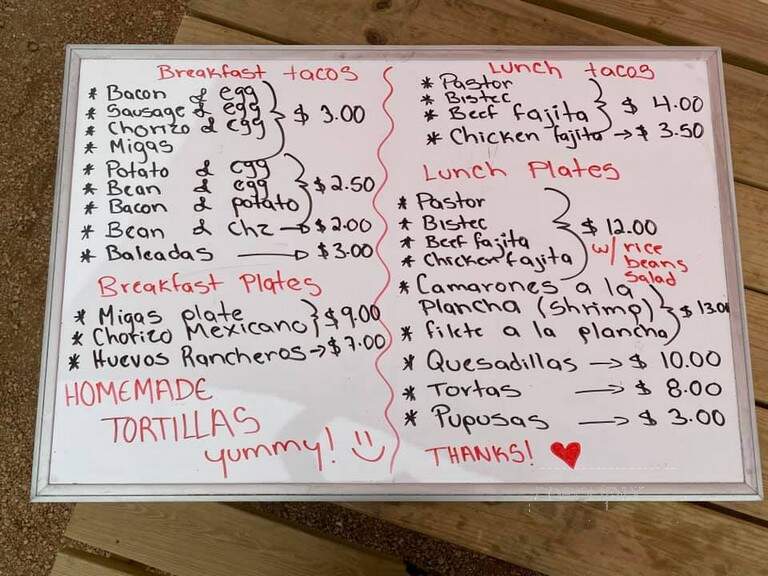 Breakfast tacos
* Bacon & egg
* Sausage & egg
* Chorizo & egg
* Migas
$3.00
* Potato & egg
* Bean & egg
* Bacon & potato
$2.50
* Bean & chz → $2.00
* Baleadas → $3.00
Breakfast Plates
* Migas plate
* Chorizo Mexicano
$9.00
* Huevos Rancheros → $7.00
HOMEMADE
TORTILLAS
yummy!
Lunch tacos
* Pastor
* Bistec
* Beef fajita
$4.00
* Chicken fajita → $3.50
Lunch Plates
* Pastor
* Bistec
* Beef fajita
* Chicken fajita
$12.00
w/ rice
beans
salad
* Camarones a la
Plancha (shrimp)
* filete a la plancha
$13.00
* Quesadillas → $10.00
* Tortas → $8.00
* Pupusas → $3.00
THANKS!